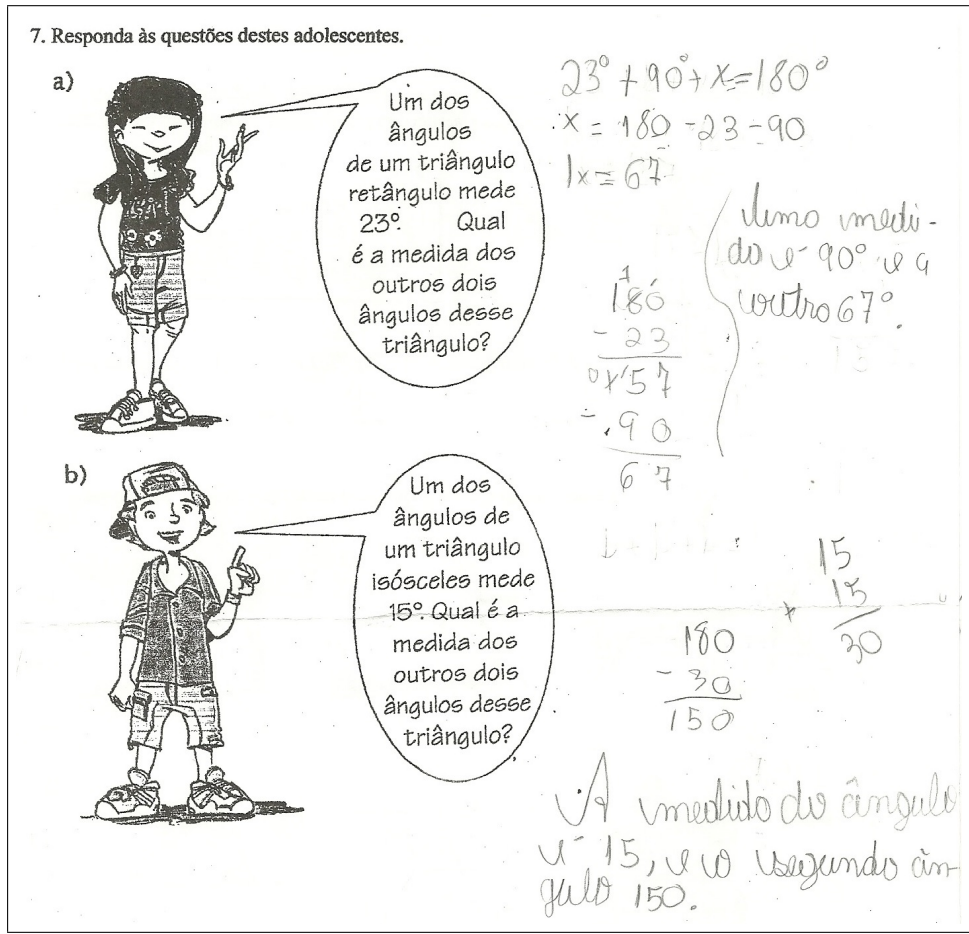 7. Responda às questões destes adolescentes.
a)
Um dos
ângulos
de um triângulo
retângulo mede
23º. Qual
é a medida dos
outros dois
ângulos desse
triângulo?
23° + 90° + x = 180°
x = 180 - 23 - 90
x = 67
180
- 23
157
- 90
67
Uma medi-
da é 90° e a
outro 67°.
b)
Um dos
ângulos de
um triângulo
isósceles mede
15º. Qual é a
medida dos
outros dois
ângulos desse
triângulo?
15
+ 15
30
180
- 30
150
A medida do ângulo
é 15, e o segundo ân-
gulo 150.